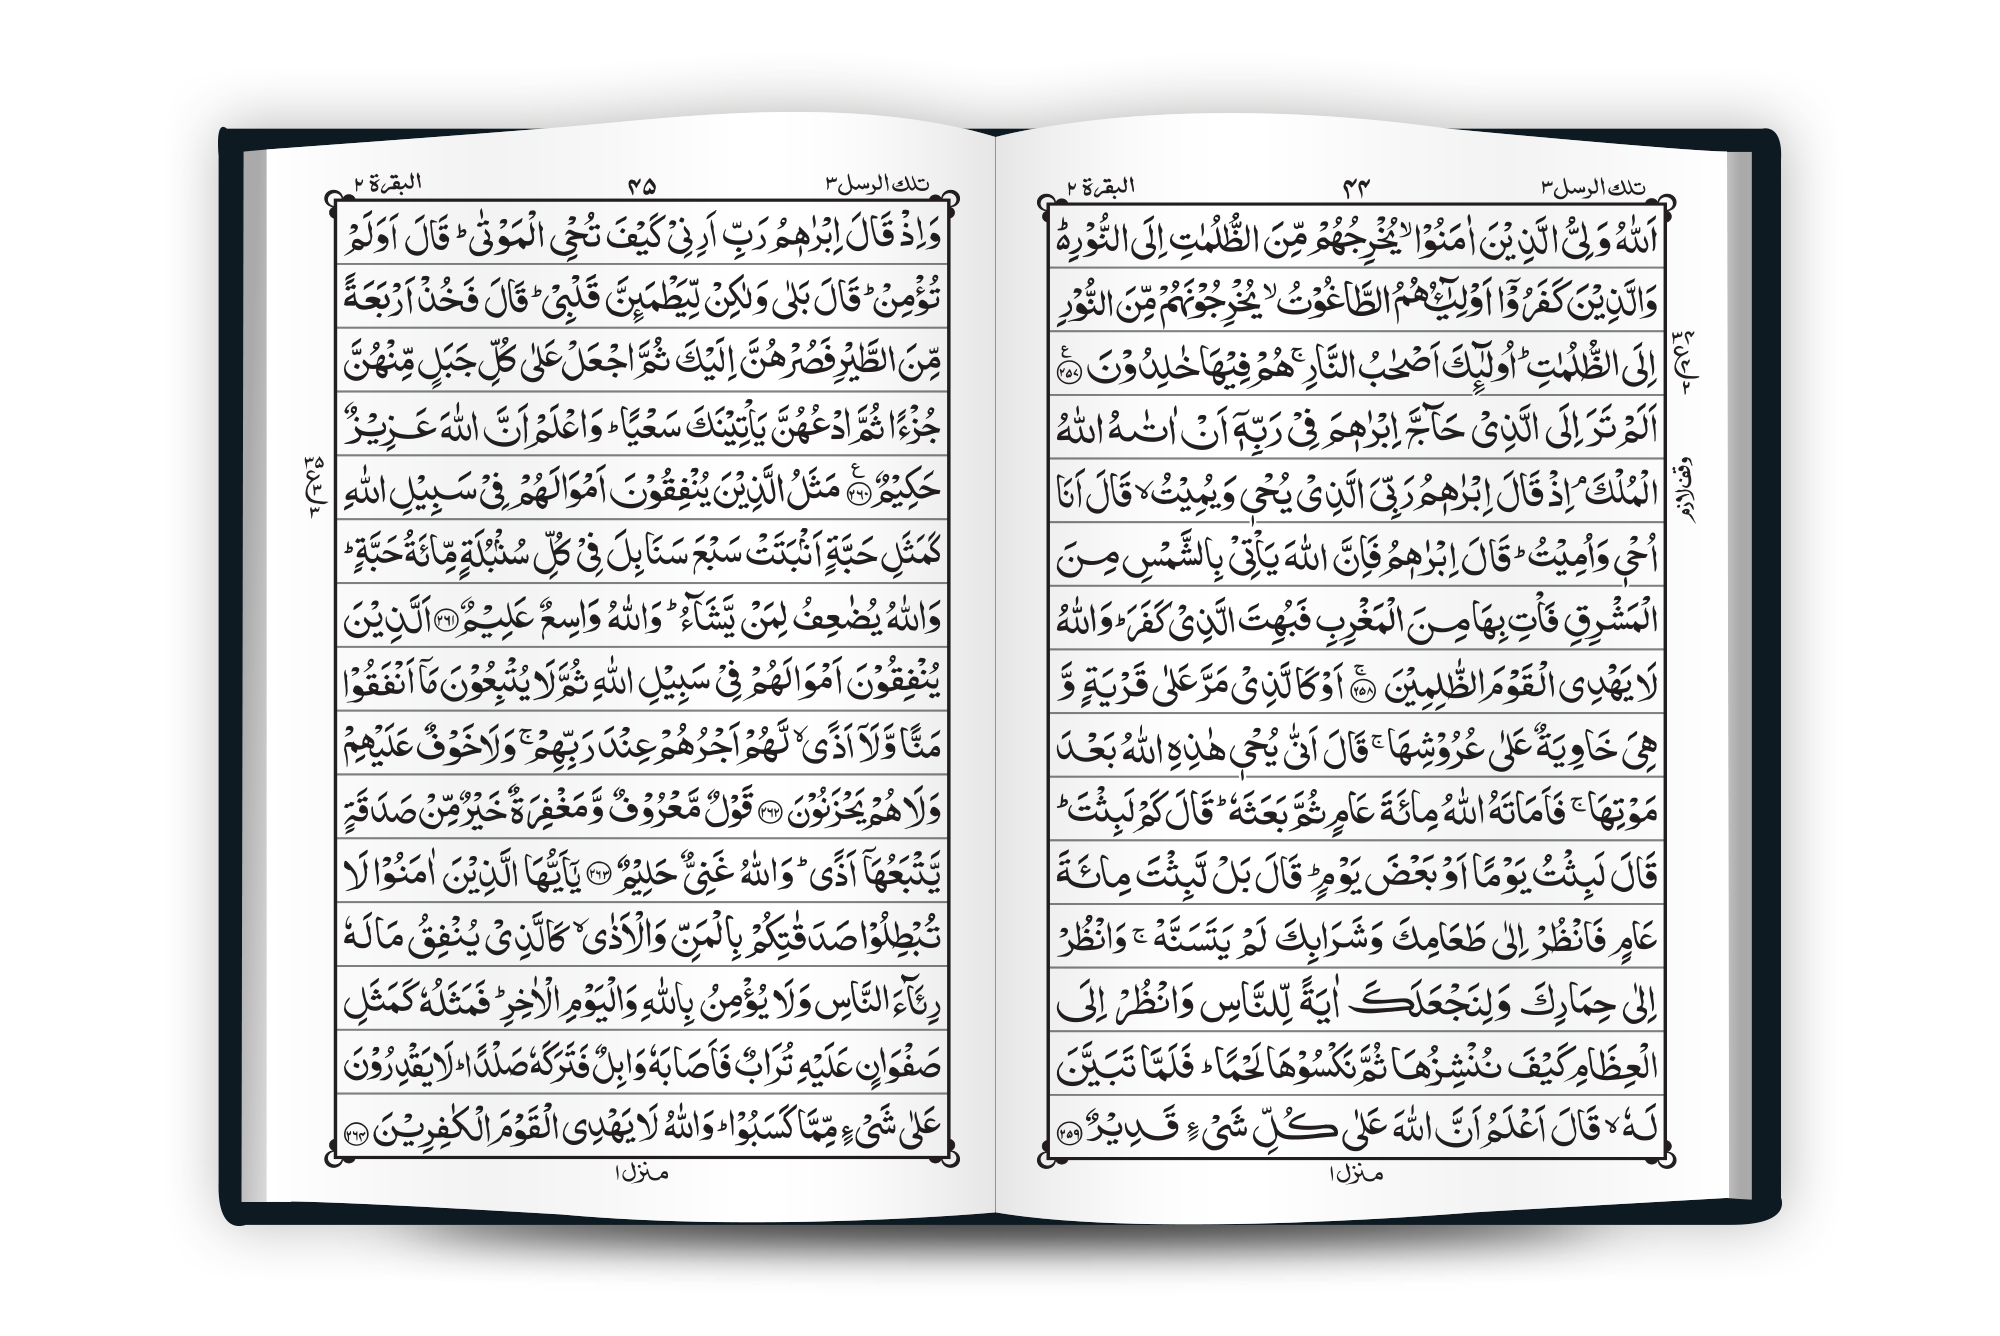 تلك الرسل ٣
٤٤
البقرة ٢
اَللّٰهُ وَلِىُّ الَّذِيْنَ اٰمَنُوْا ۙ يُخْرِجُهُمْ مِّنَ الظُّلُمٰتِ اِلَى النُّوْرِ ؕ۬
وَالَّذِيْنَ كَفَرُوْۤا اَوْلِيٰٓـُٔهُمُ الطَّاغُوْتُ ۙ يُخْرِجُوْنَهُمْ مِّنَ النُّوْرِ
اِلَى الظُّلُمٰتِ ؕ اُولٰٓئِكَ اَصْحٰبُ النَّارِ ۚ هُمْ فِيْهَا خٰلِدُوْنَ ﴿۲۵۷﴾ ع
اَلَمْ تَرَ اِلَى الَّذِىْ حَآجَّ اِبْرٰهٖمَ فِىْ رَبِّهٖۤ اَنْ اٰتٰىهُ اللّٰهُ
الْمُلْكَ ۘ اِذْ قَالَ اِبْرٰهٖمُ رَبِّىَ الَّذِىْ يُحْىٖ وَيُمِيْتُ ۙ قَالَ اَنَا
اُحْىٖ وَاُمِيْتُ ؕ قَالَ اِبْرٰهٖمُ فَاِنَّ اللّٰهَ يَاْتِىْ بِالشَّمْسِ مِنَ
الْمَشْرِقِ فَاْتِ بِهَا مِنَ الْمَغْرِبِ فَبُهِتَ الَّذِىْ كَفَرَ ؕ وَاللّٰهُ
لَا يَهْدِى الْقَوْمَ الظّٰلِمِيْنَ ۚ ﴿۲۵۸﴾ اَوْ كَالَّذِىْ مَرَّ عَلٰى قَرْيَةٍ وَّ
هِىَ خَاوِيَةٌ عَلٰى عُرُوْشِهَا ۚ قَالَ اَنّٰى يُحْىٖ هٰذِهِ اللّٰهُ بَعْدَ
مَوْتِهَا ۚ فَاَمَاتَهُ اللّٰهُ مِائَةَ عَامٍ ثُمَّ بَعَثَهٗ ؕ قَالَ كَمْ لَبِثْتَ ؕ
قَالَ لَبِثْتُ يَوْمًا اَوْ بَعْضَ يَوْمٍ ؕ قَالَ بَلْ لَّبِثْتَ مِائَةَ
عَامٍ فَانْظُرْ اِلٰى طَعَامِكَ وَشَرَابِكَ لَمْ يَتَسَنَّهْ ۚ وَانْظُرْ
اِلٰى حِمَارِكَ وَلِنَجْعَلَكَ اٰيَةً لِّلنَّاسِ وَانْظُرْ اِلَى
الْعِظَامِ كَيْفَ نُنْشِزُهَا ثُمَّ نَكْسُوْهَا لَحْمًا ؕ فَلَمَّا تَبَيَّنَ
لَهٗ ۙ قَالَ اَعْلَمُ اَنَّ اللّٰهَ عَلٰى كُلِّ شَىْءٍ قَدِيْرٌ ﴿۲۵۹﴾
٣٤
ع
٤
٢
وقف لازم
منزل ١
تلك الرسل ٣
٤٥
البقرة ٢
وَاِذْ قَالَ اِبْرٰهٖمُ رَبِّ اَرِنِىْ كَيْفَ تُحْىِ الْمَوْتٰى ؕ قَالَ اَوَلَمْ
تُؤْمِنْ ؕ قَالَ بَلٰى وَلٰكِنْ لِّيَطْمَئِنَّ قَلْبِىْ ؕ قَالَ فَخُذْ اَرْبَعَةً
مِّنَ الطَّيْرِ فَصُرْهُنَّ اِلَيْكَ ثُمَّ اجْعَلْ عَلٰى كُلِّ جَبَلٍ مِّنْهُنَّ
جُزْءًا ثُمَّ ادْعُهُنَّ يَاْتِيْنَكَ سَعْيًا ؕ وَاعْلَمْ اَنَّ اللّٰهَ عَزِيْزٌ
حَكِيْمٌ ﴿۲۶۰﴾ ع مَثَلُ الَّذِيْنَ يُنْفِقُوْنَ اَمْوَالَهُمْ فِىْ سَبِيْلِ اللّٰهِ
كَمَثَلِ حَبَّةٍ اَنْۢبَتَتْ سَبْعَ سَنَابِلَ فِىْ كُلِّ سُنْۢبُلَةٍ مِّائَةُ حَبَّةٍ ؕ
وَاللّٰهُ يُضٰعِفُ لِمَنْ يَّشَآءُ ؕ وَاللّٰهُ وَاسِعٌ عَلِيْمٌ ﴿۲۶۱﴾ اَلَّذِيْنَ
يُنْفِقُوْنَ اَمْوَالَهُمْ فِىْ سَبِيْلِ اللّٰهِ ثُمَّ لَا يُتْبِعُوْنَ مَاۤ اَنْفَقُوْا
مَنًّا وَّلَاۤ اَذًى ۙ لَّهُمْ اَجْرُهُمْ عِنْدَ رَبِّهِمْ ۚ وَلَا خَوْفٌ عَلَيْهِمْ
وَلَا هُمْ يَحْزَنُوْنَ ﴿۲۶۲﴾ قَوْلٌ مَّعْرُوْفٌ وَّمَغْفِرَةٌ خَيْرٌ مِّنْ صَدَقَةٍ
يَّتْبَعُهَاۤ اَذًى ؕ وَاللّٰهُ غَنِىٌّ حَلِيْمٌ ﴿۲۶۳﴾ يٰۤاَيُّهَا الَّذِيْنَ اٰمَنُوْا لَا
تُبْطِلُوْا صَدَقٰتِكُمْ بِالْمَنِّ وَالْاَذٰى ۙ كَالَّذِىْ يُنْفِقُ مَالَهٗ
رِئَآءَ النَّاسِ وَلَا يُؤْمِنُ بِاللّٰهِ وَالْيَوْمِ الْاٰخِرِ ؕ فَمَثَلُهٗ كَمَثَلِ
صَفْوَانٍ عَلَيْهِ تُرَابٌ فَاَصَابَهٗ وَابِلٌ فَتَرَكَهٗ صَلْدًا ؕ لَا يَقْدِرُوْنَ
عَلٰى شَىْءٍ مِّمَّا كَسَبُوْا ؕ وَاللّٰهُ لَا يَهْدِى الْقَوْمَ الْكٰفِرِيْنَ ﴿۲۶۴﴾
٣٥
ع
٣
٣
منزل ١